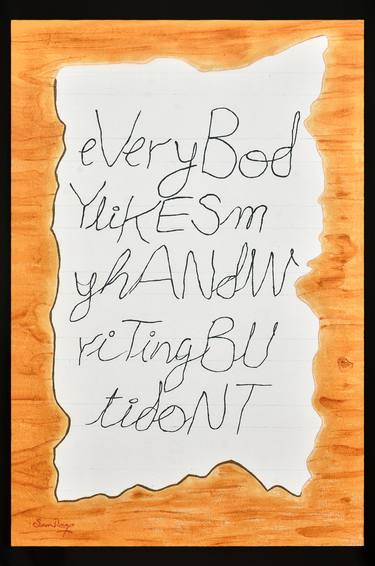 eVeryBod
YliKESm
yhANdW
riTingBU
tidoNT